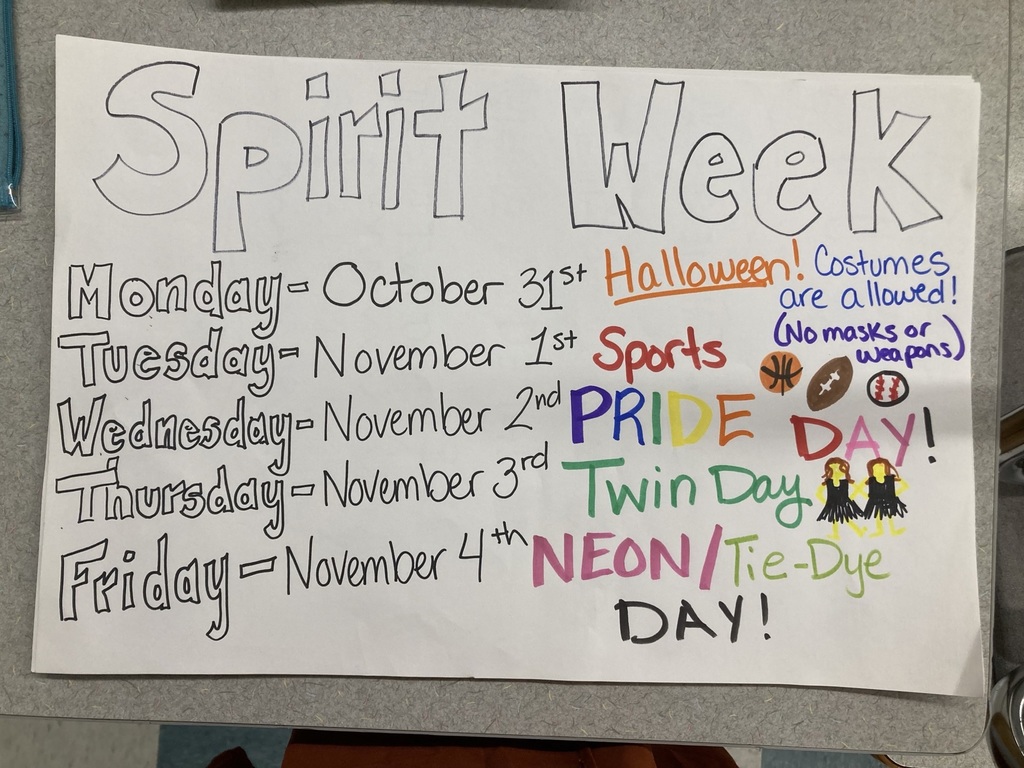 Spirit Week
Monday- October 31st Halloween! Costumes
are allowed!
(No masks or
weapons)
Tuesday- November 1st Sports
Wednesday- November 2nd PRIDE DAY!
Thursday- November 3rd Twin Day
Friday- November 4th NEON/Tie-Dye
DAY!